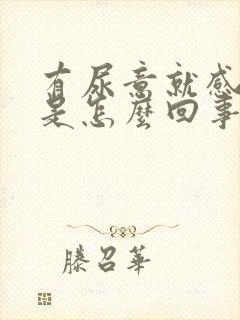 有尿意就感
是怎麼回事
滕召華